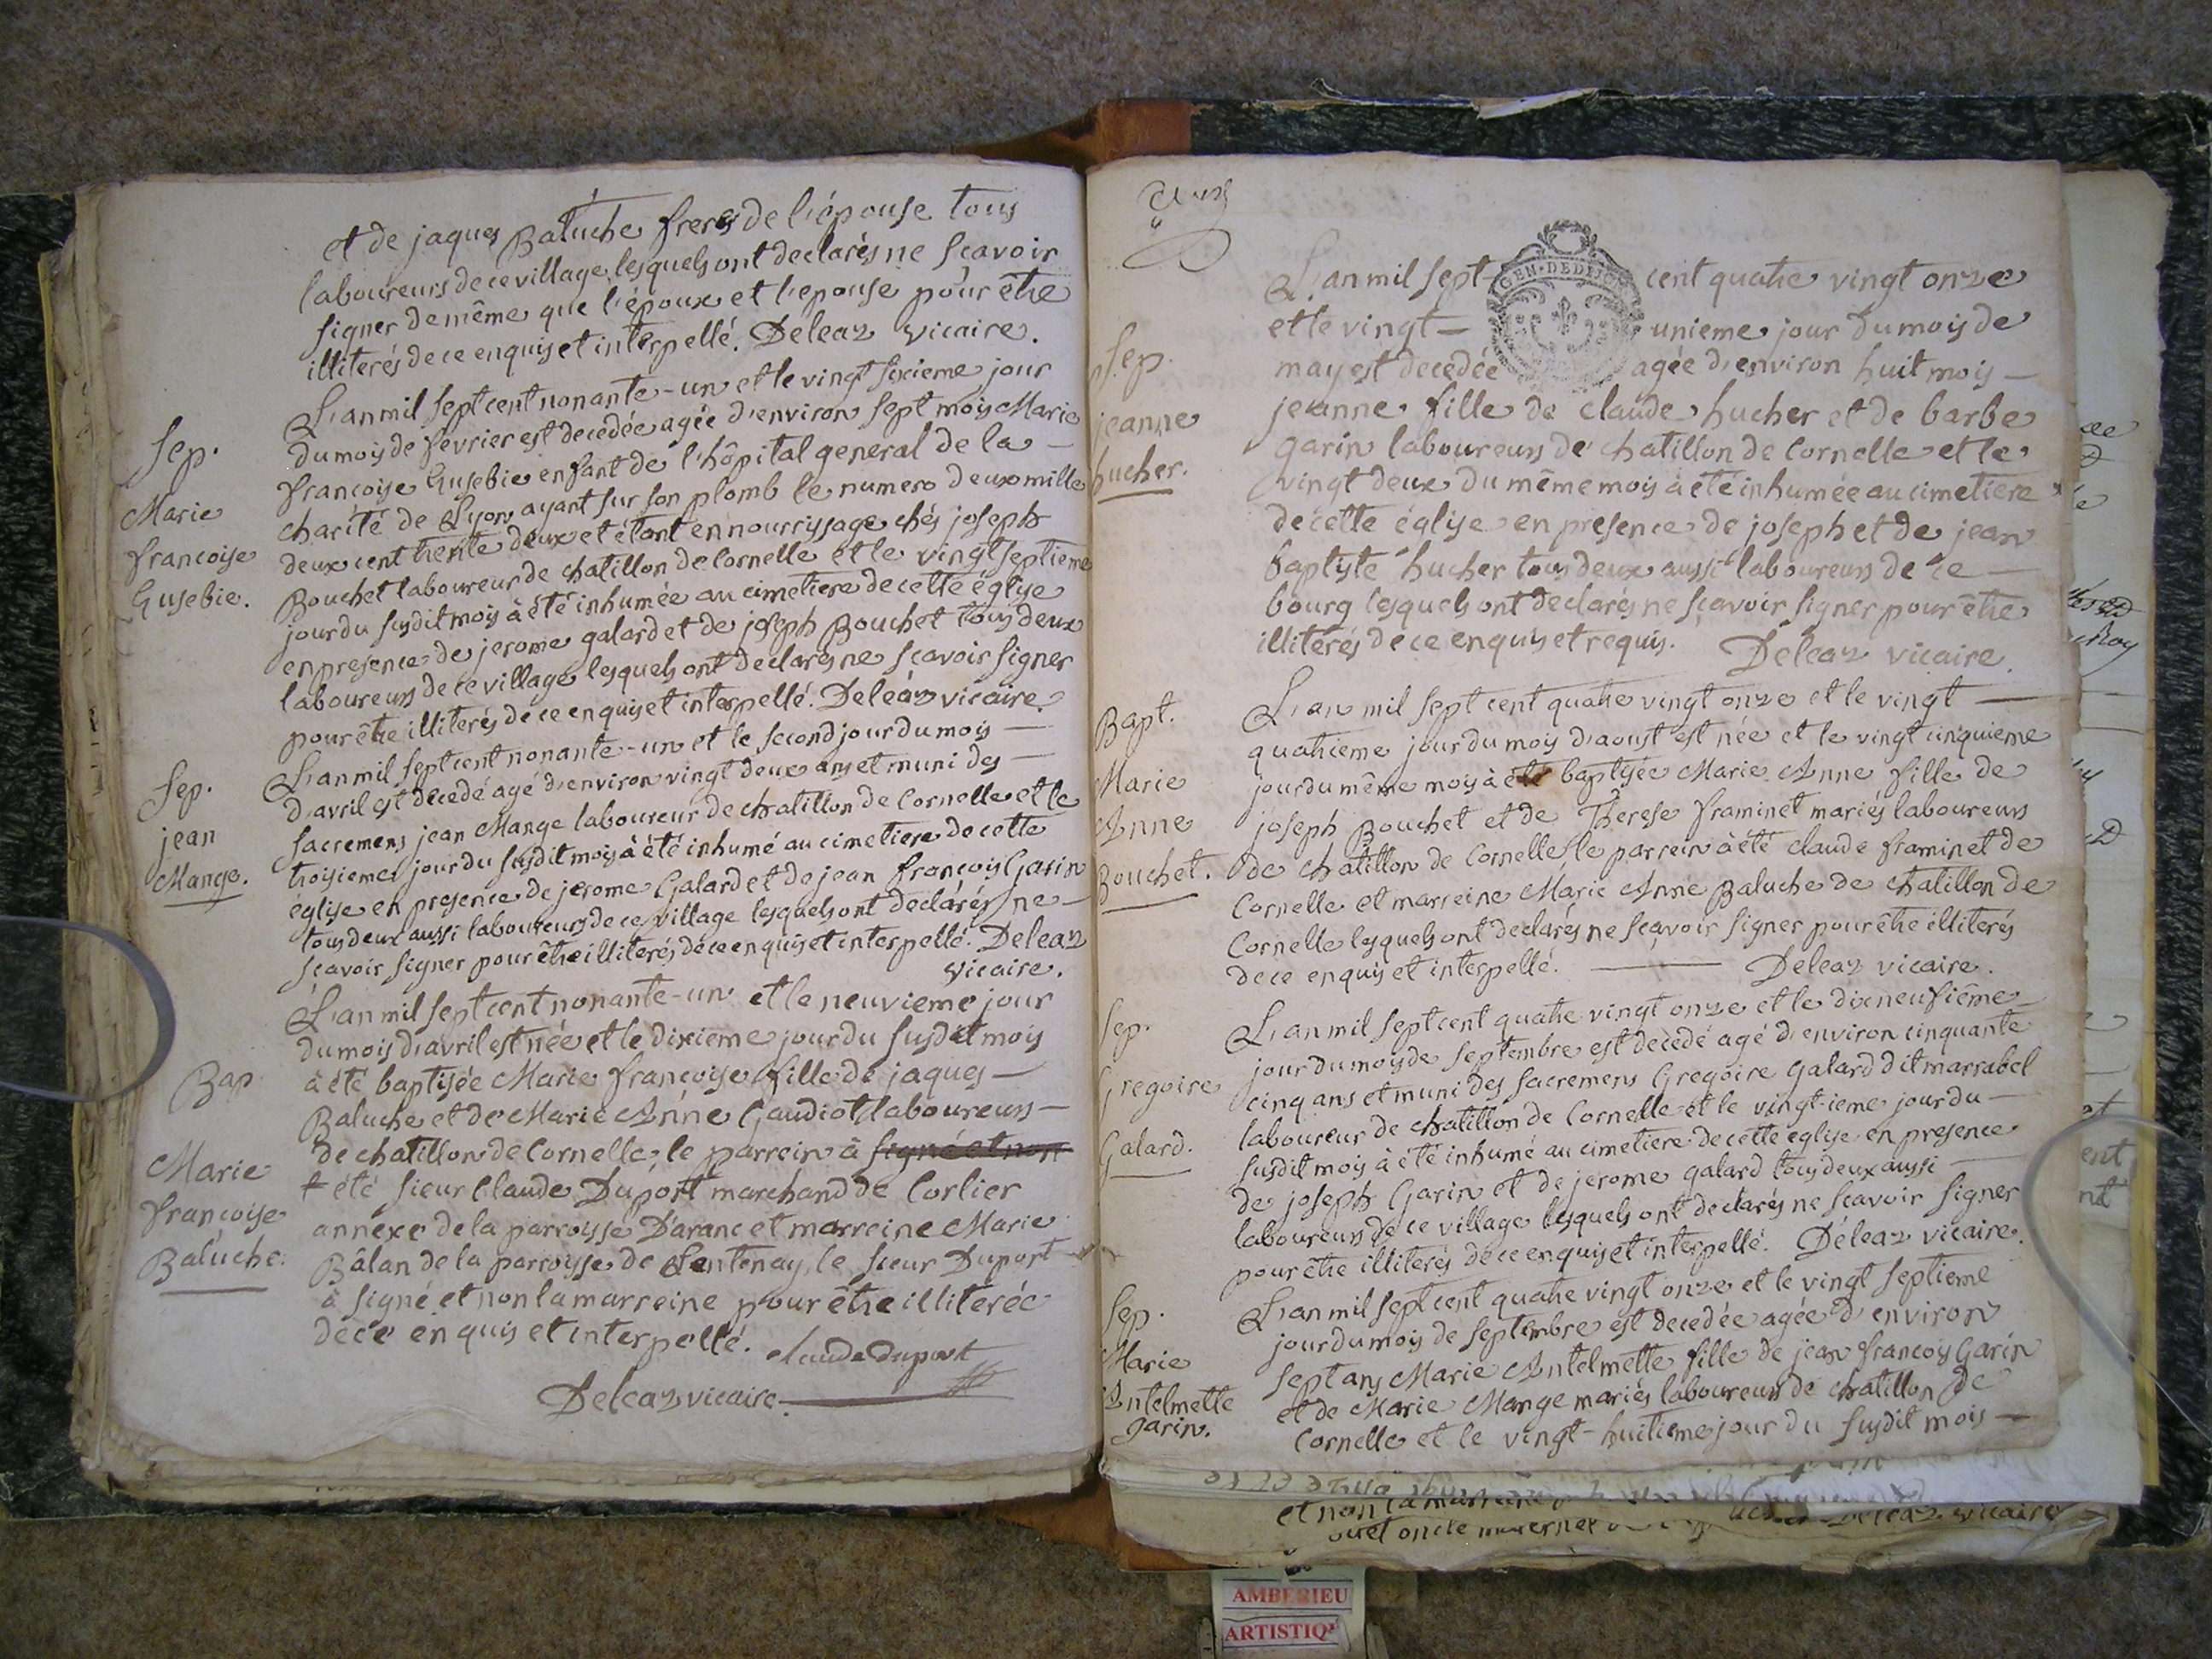 et de jaques Baluche freres de l'épouse tous
laboureurs de ce village, lesquels ont declarés ne sçavoir
signer de même que l'époux et l'epouse pour être
illiterés de ce enquis et interpellé. Deleaz vicaire.
Sep.
Marie
francoise
Eusebie.
L'an mil sept cent nonante-un et le vingt sixieme jour
du mois de fevrier est decedée agée d'environ sept mois Marie
francoise Eusebie enfant de l'hôpital general de la
charité de Lyon, ayant sur son plomb le numero deux mille
deux cent trente deux et étant en nourrissage chés joseph
Bouchet laboureur de chatillon de Cornelle et le vingt septieme
jour du susdit mois à été inhumée au cimetiere de cette église
en presence de jerome galard et de joseph Bouchet tous deux
laboureurs de ce village lesquels ont declarés ne sçavoir signer
pour être illiterés de ce enquis et interpellé. Deleaz vicaire.
Sep.
jean
Mange.
L'an mil sept cent nonante-un et le second jour du mois
d'avril est decedé agé d'environ vingt deux ans et muni des
sacremens jean Mange laboureur de chatillon de Cornelle et le
troisieme jour du susdit mois à été inhumé au cimetiere de cette
eglise en presence de jerome Galard et de jean françois Garin
tous deux aussi laboureurs de ce village lesquels ont declarés ne
sçavoir signer pour être illiterés de ce enquis et interpellé. Deleaz
vicaire.
Bap
Marie
françoise
Baluche.
L'an mil sept cent nonante-un et le neuvieme jour
du mois d'avril est née et le dixieme jour du susdit mois
à été baptisée Marie françoise fille de jaques
Baluche et de Marie Anne Gaudiot laboureurs
de chatillon de Cornelle, le parrein à signé et non
+ été sieur Claude Duport marchand de Corlier
annexe de la parroisse D'aranc et marreine Marie
Bâlan de la parroisse de Lentenay, le sieur Duport
à signé et non la marreine pour être illiterée
de ce enquis et interpellé.
claude duport
Deleaz vicaire.
GEN. DE DIJON
Sep.
jeanne
hucher.
L'an mil sept cent quatre vingt onze
et le vingt unieme jour du mois de
may est decedée agée d'environ huit mois
jeanne fille de claude hucher et de barbe
garin laboureurs de chatillon de Cornelle et le
vingt deux du même mois à été inhumée au cimetiere
de cette église en presence de joseph et de jean
baptiste hucher tous deux aussi laboureurs de ce
bourg lesquels ont declarés ne sçavoir signer pour être
illiterés de ce enquis et requis. Deleaz vicaire.
Bapt.
Marie
Anne
Bouchet.
L'an mil sept cent quatre vingt onze et le vingt
quatrieme jour du mois d'aoust est née et le vingt cinquieme
jour du même mois à été baptisée Marie Anne fille de
joseph Bouchet et de Therese framinet mariés laboureurs
de chatillon de Cornelle le parrein à été claude framinet de
Cornelle et marreine Marie Anne Baluche de chatillon de
Cornelle lesquels ont declarés ne sçavoir signer pour être illiterés
de ce enquis et interpellé. Deleaz vicaire.
Sep.
Gregoire
Galard.
L'an mil sept cent quatre vingt onze et le dix neufiême
jour du mois de septembre est decedé agé d'environ cinquante
cinq ans et muni des sacremens Gregoire galard dit marrabel
laboureur de chatillon de Cornelle et le vingt-ieme jour du
susdit mois à été inhumé au cimetiere de cette eglise en presence
de joseph Garin et de jerome galard tous deux aussi
laboureurs de ce village lesquels ont declarés ne sçavoir signer
pour être illiterés de ce enquis et interpellé. Deleaz vicaire.
Sep.
Marie
Antelmette
garin.
L'an mil sept cent quatre vingt onze et le vingt septieme
jour du mois de septembre est decedée agée d'environ
sept ans Marie Antelmette fille de jean françois Garin
et de Marie Mange mariés laboureurs de chatillon de
Cornelle et le vingt-huitieme jour du susdit mois
et non la marreine
vicaire
AMBERIEU
ARTISTIQ